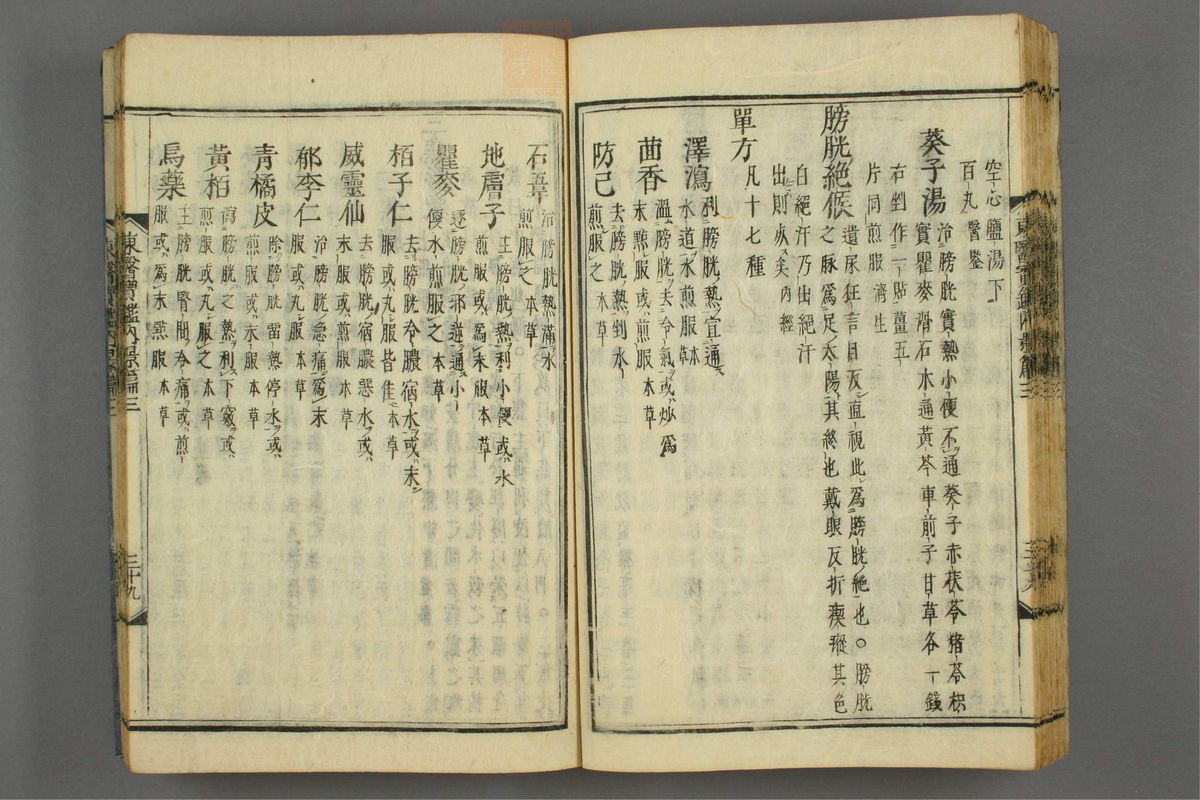 空心鹽湯下
百丸醫鑒
葵子湯 治膀胱實熱小便不通葵子赤茯苓猪苓枳
實瞿麥滑石木通黃芩車前子甘草各一錢
右剉作一貼薑五
片同煎服濟生
膀胱絕候 遺尿狂言目反直視此爲膀胱絕也○膀胱
之脉爲足太陽其終也戴眼反折瘈瘲其色
白絕汗乃出絕汗
出則死矣內經
單方 凡十七種
澤瀉 利膀胱熱宣通
水道水煎服本草
茴香 溫膀胱去冷氣或炒爲
末點服或煎服本草
防己 去膀胱熱剉水
煎服之本草
石葦 治膀胱熱滿水
煎服之本草
地膚子 主膀胱熱利小便或水
煎服或爲末服本草
瞿麥 逐膀胱邪逆通小
便水煎服之本草
栢子仁 去膀胱冷膿宿水或末
服或丸服皆佳本草
威靈仙 去膀胱宿膿惡水或
末服或丸服本草
郁李仁 治膀胱急痛爲末
服或丸服本草
青橘皮 除膀胱留熱停水或
煎服或末服本草
黃栢 瀉膀胱之熱利下竅或
煎服或丸服之本草
烏藥 主膀胱腎間冷痛或煎
服或爲末點服本草
東醫寶鑑內景篇三
三十九